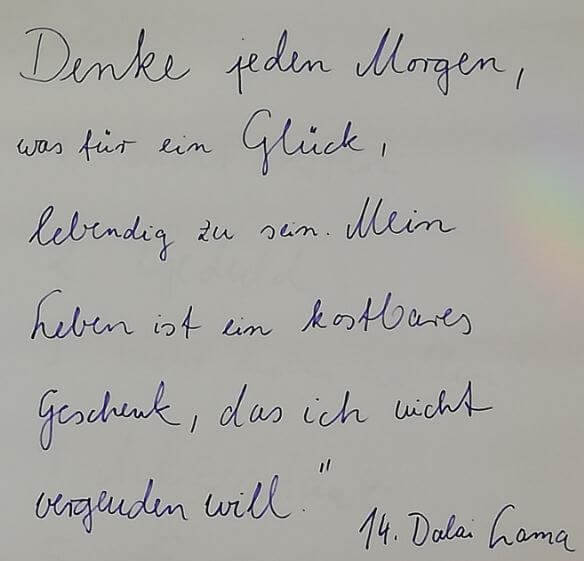 Denke jeden Morgen,
was für ein Glück,
lebendig zu sein. Mein
Leben ist ein kostbares
Geschenk, das ich nicht
vergeuden will."
14. Dalai Lama